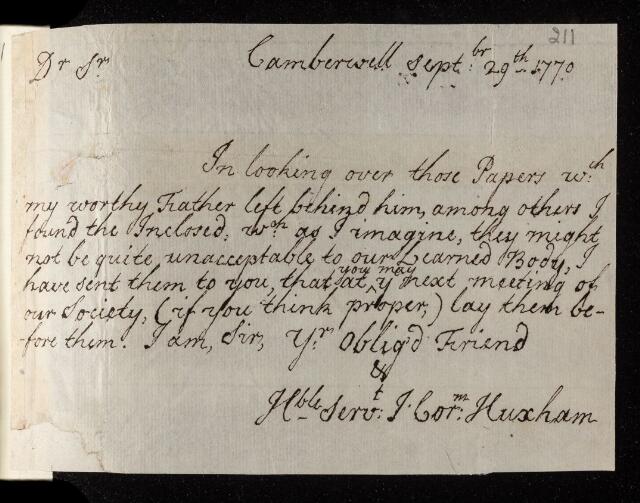 211
Camberwell Septbr 29th 1770
Dr Sr
In looking over those Papers wch
my worthy Father left behind him, among others I
found the Inclosed: wch as I imagine, they might
not be quite unacceptable to our Learned Body, I
have sent them to you, that you may at ye next meeting of
our Society, (if you think proper,) lay them be-
fore them. I am, Sir, Yr Oblig'd Friend
&
Hble Servt J. Corm Huxham